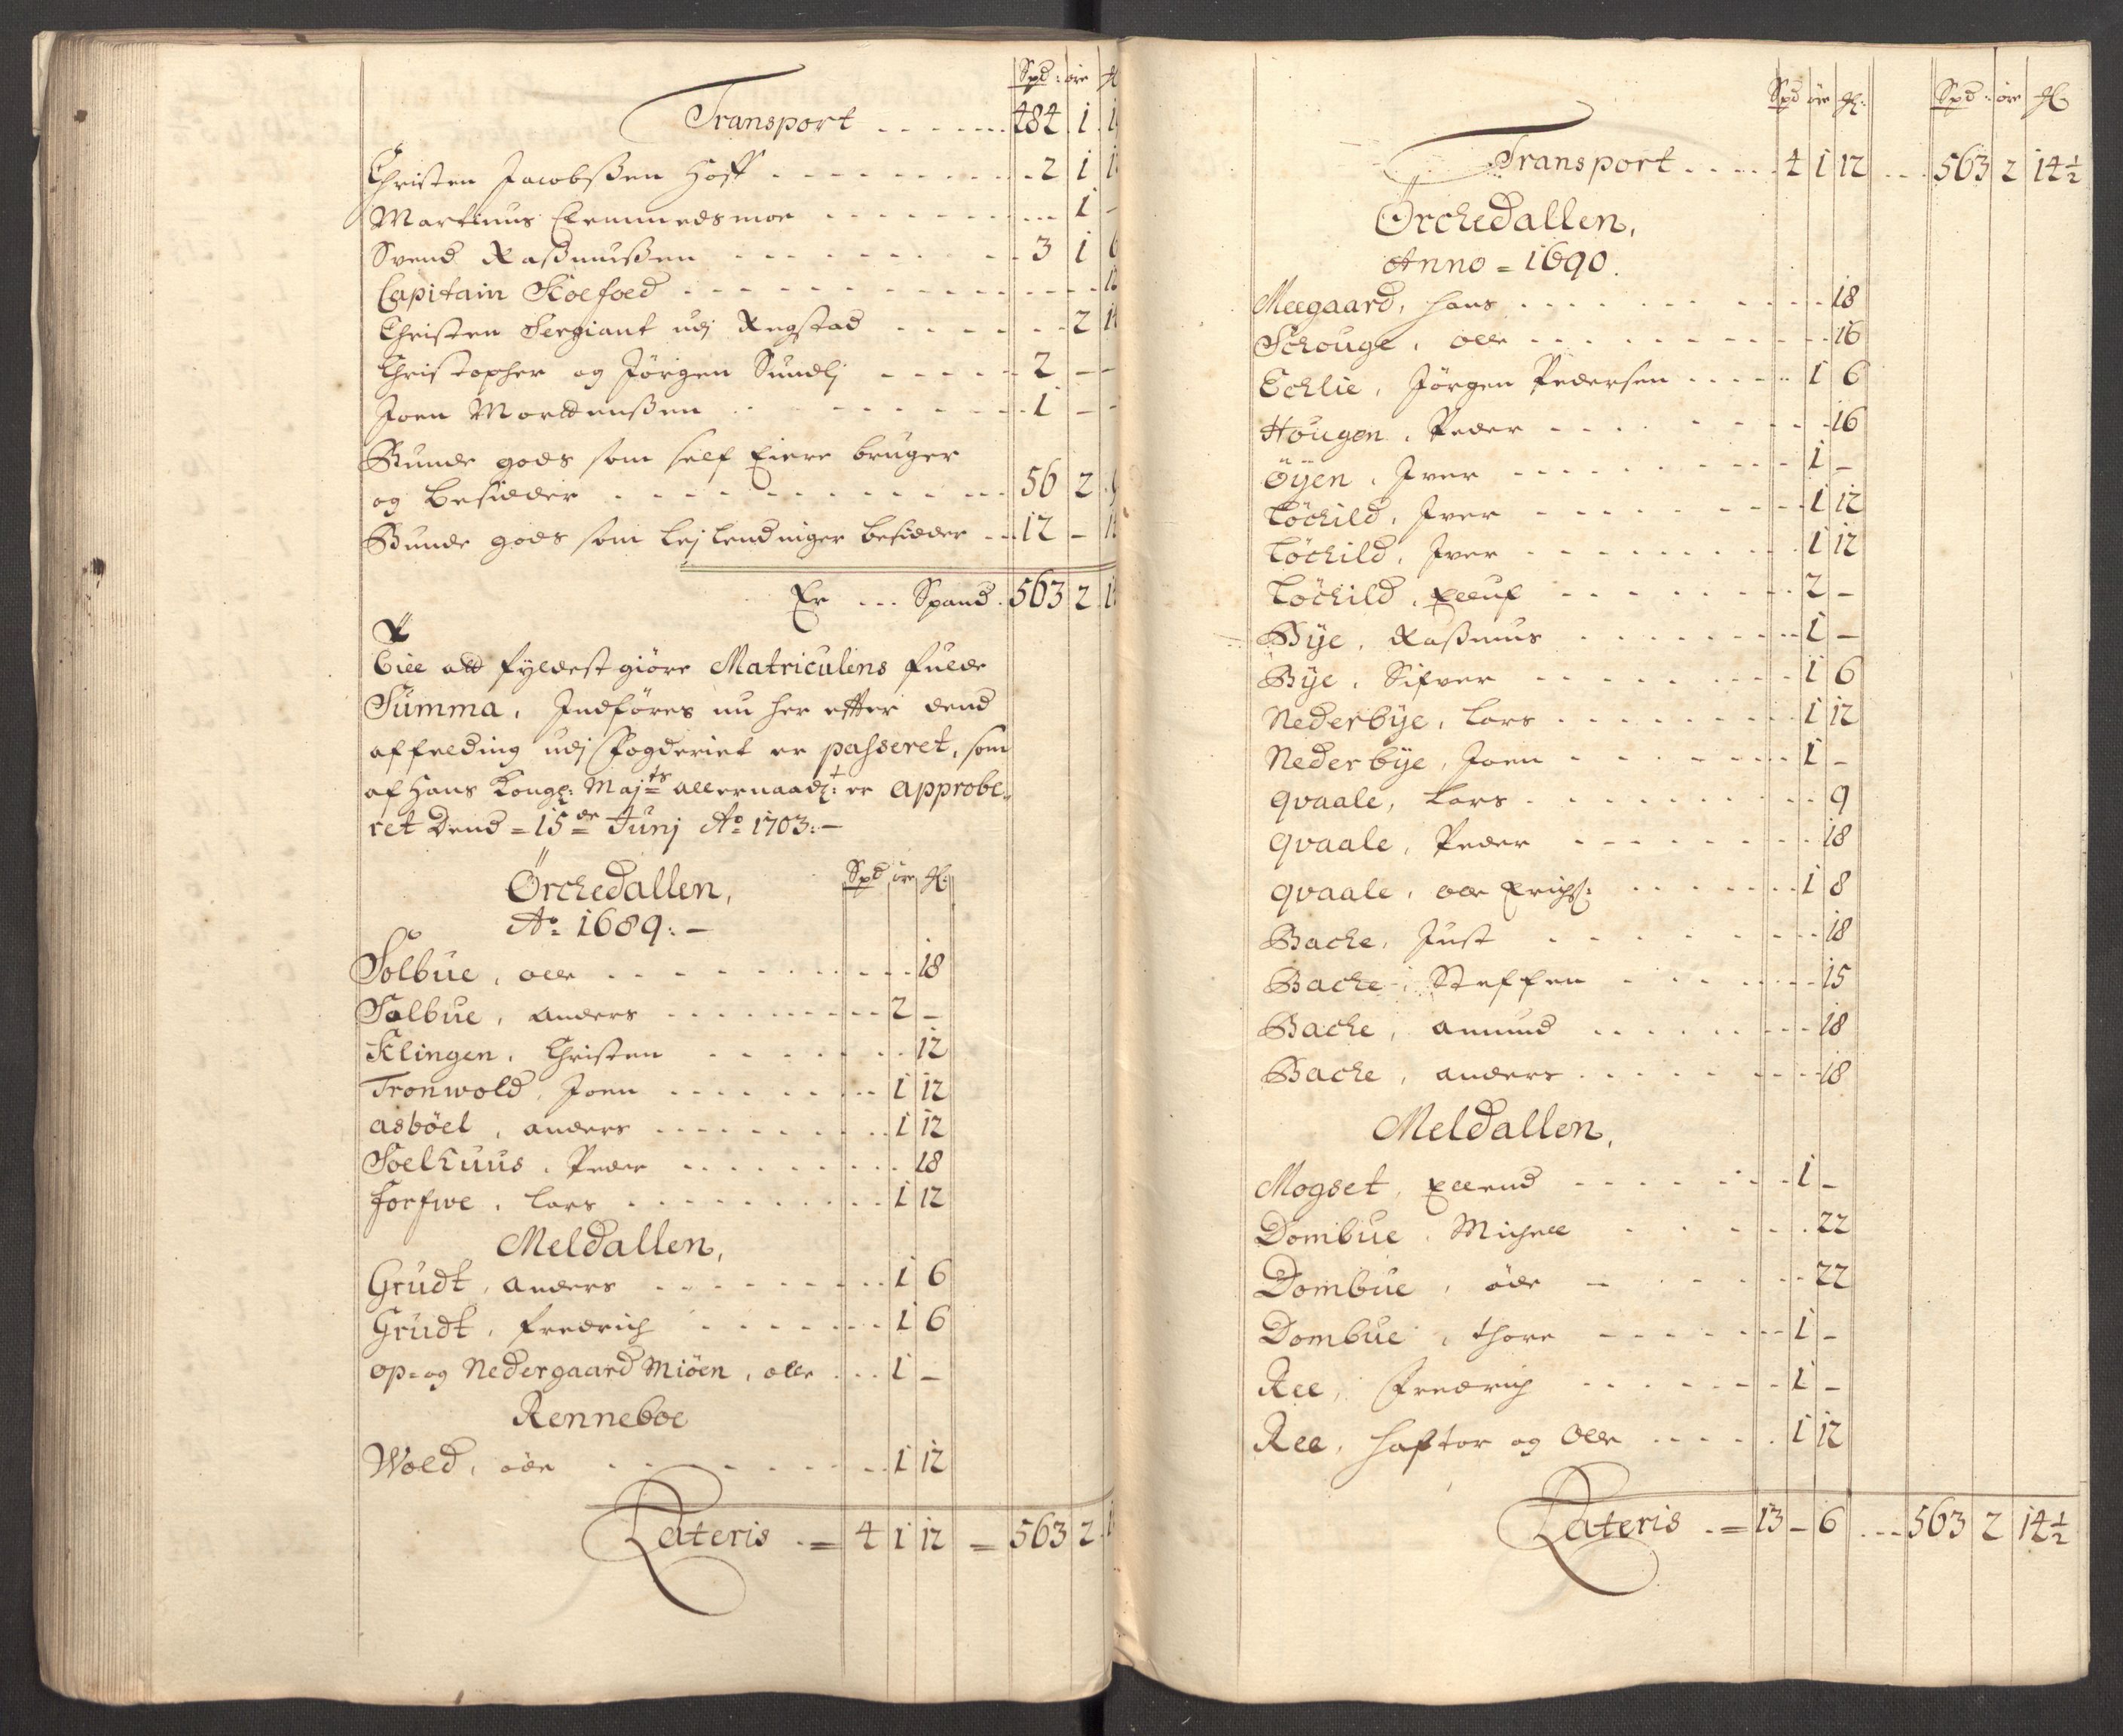 Spd: öre
Transport . . . . . . . 484 . 1
Christen Jacobsen Hoff . . . . . . . . . 2 1
Martinus Clemmedsmoe . . . . . . . . 1 -
Svend Rassmussen . . . . . . . . 3 1 6
Capitain Koefoed . . . . . . . . . . .
Christen Sergiant udj Regstad . . . . . . 2
Christopher og Jörgen Sundlj . . . . - 2 - -
Joen Mordtenssen . . . . . . . . 1 - -
Bunde gods som self Eiere bruger
og besidder . . . . . . . . . . . 56 2
Bunde gods som Lejlendninger besidder . . 12 -
Er ... Spand . 563 2
att fyldest giöre Matriculens fulde
Summa, Indföres nu her effter dend
affelding udj Fogderiet er passeret, som
af Hans Kongl: Majts allernaadt: er approbe-
ret Dend = 15de Junj Ao 1703: -
Örchedallen, Spd öre
Ao 1689: -
Solbue, olle . . . . . . . . . . 18
Solbue, anders . . . . . . . . . 2 -
Klingen, Christen . . . . . . . 12
Tronwold, Joen . . . . . . . 1 12
asböel, anders . . . . . . . . 1 12
Soelhuus, Peder . . . . . . . . 18
Forfwe, Lars . . . . . . . . . 1 12
Meldallen,
Grudt, anders . . . . . . . . 1 6
Grudt, fredrich . . . . . . . 1 6
op= og Nedergaard Miöen, olle . . . 1 -
Renneboe
Wold, öde . . . . . . . . . 1 12
Lateris . = 4 1 12 = 563 2
Spd öre Spd: öre
Transport . . . . . 4 1 12 . . . 563 2 14½
Örchedallen,
Anno = 1690.
Meegaard, hans . . . . . . . . . 18
Schouge, olle . . . . . . . . . 16
Echlie, Jörgen Pedersen . . . . . . 1 6
Hougen, Peder . . . . . . . . 16
Öyen, Iver . . . . . . . . . 1 -
Löchild, Iver . . . . . . . . 1 12
Löchild, Iver . . . . . . . . 1 12
Löchild, Elluf . . . . . . . . 2 -
Bye, Rassmus . . . . . . . . 1 -
Bye, Sifver . . . . . . . . 1 6
Nederbye, Lars . . . . . . . . 1 12
Nederbye, Joen . . . . . . . . 1 -
qvaale, Lars . . . . . . . . . 9
qvaale, Peder . . . . . . . . 18
qvaale, olle Erichs: . . . . . . . 1 8
Bache, Just . . . . . . . . . 18
Bache, Steffen . . . . . . . . 15
Bache, amund . . . . . . . . 18
Bache, anders . . . . . . . . 18
Meldallen,
Mogset, Ellend . . . . . . . . 1 -
Dombue, Michell . . . . . . . 22
Dombue, öde . . . . . . . 22
Dombue, thore . . . . . . . 1 -
Ree, Fredrich . . . . . . . 1 -
Ree, haftor og Olle . . . . . 1 12
Lateris . = 13 - 6 . . . 563 2 14½